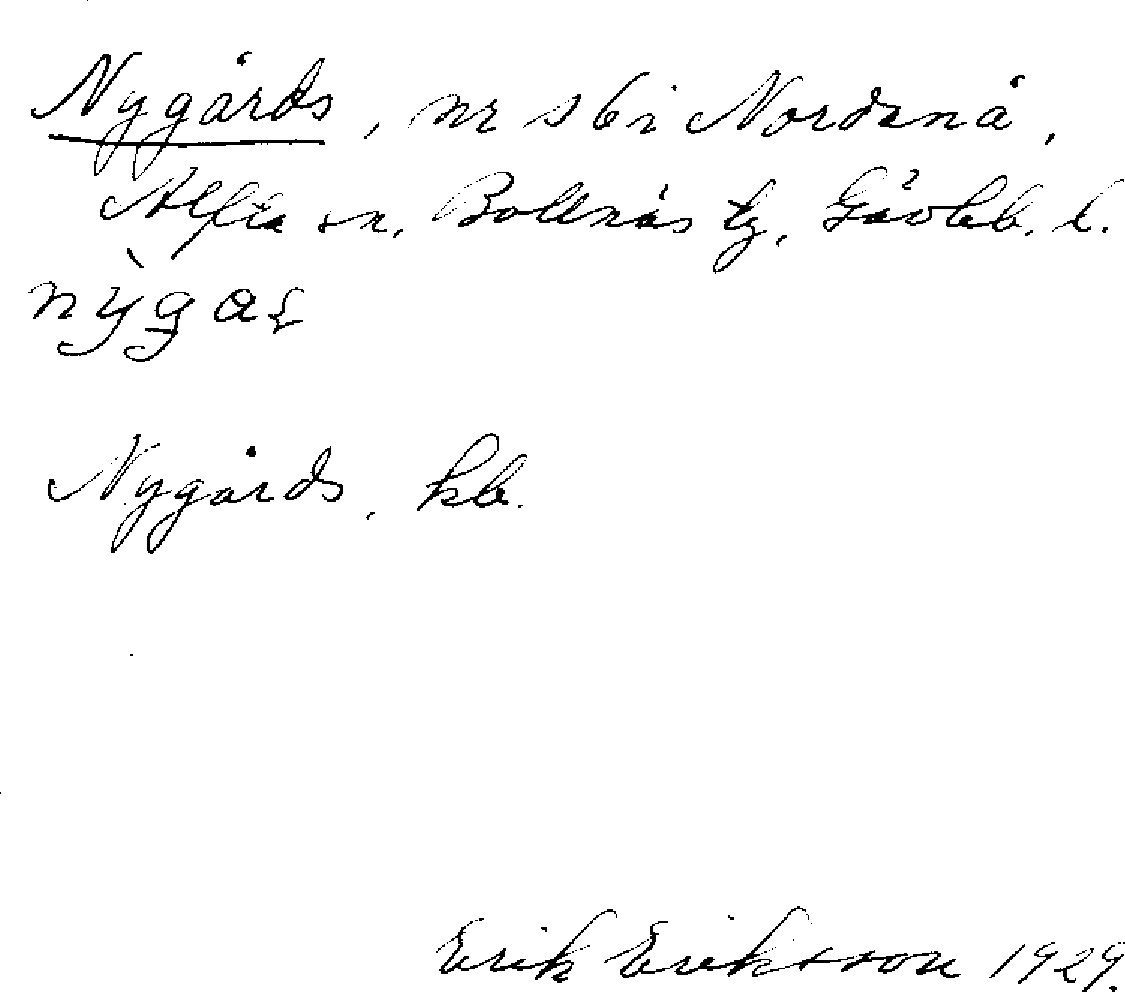 Nygårds, nr 16 i Nordanå,
Alfta sn, Bollnäs tg, Gävleb. l.
Nygårds, kb.
Erik Eriksson 1929.